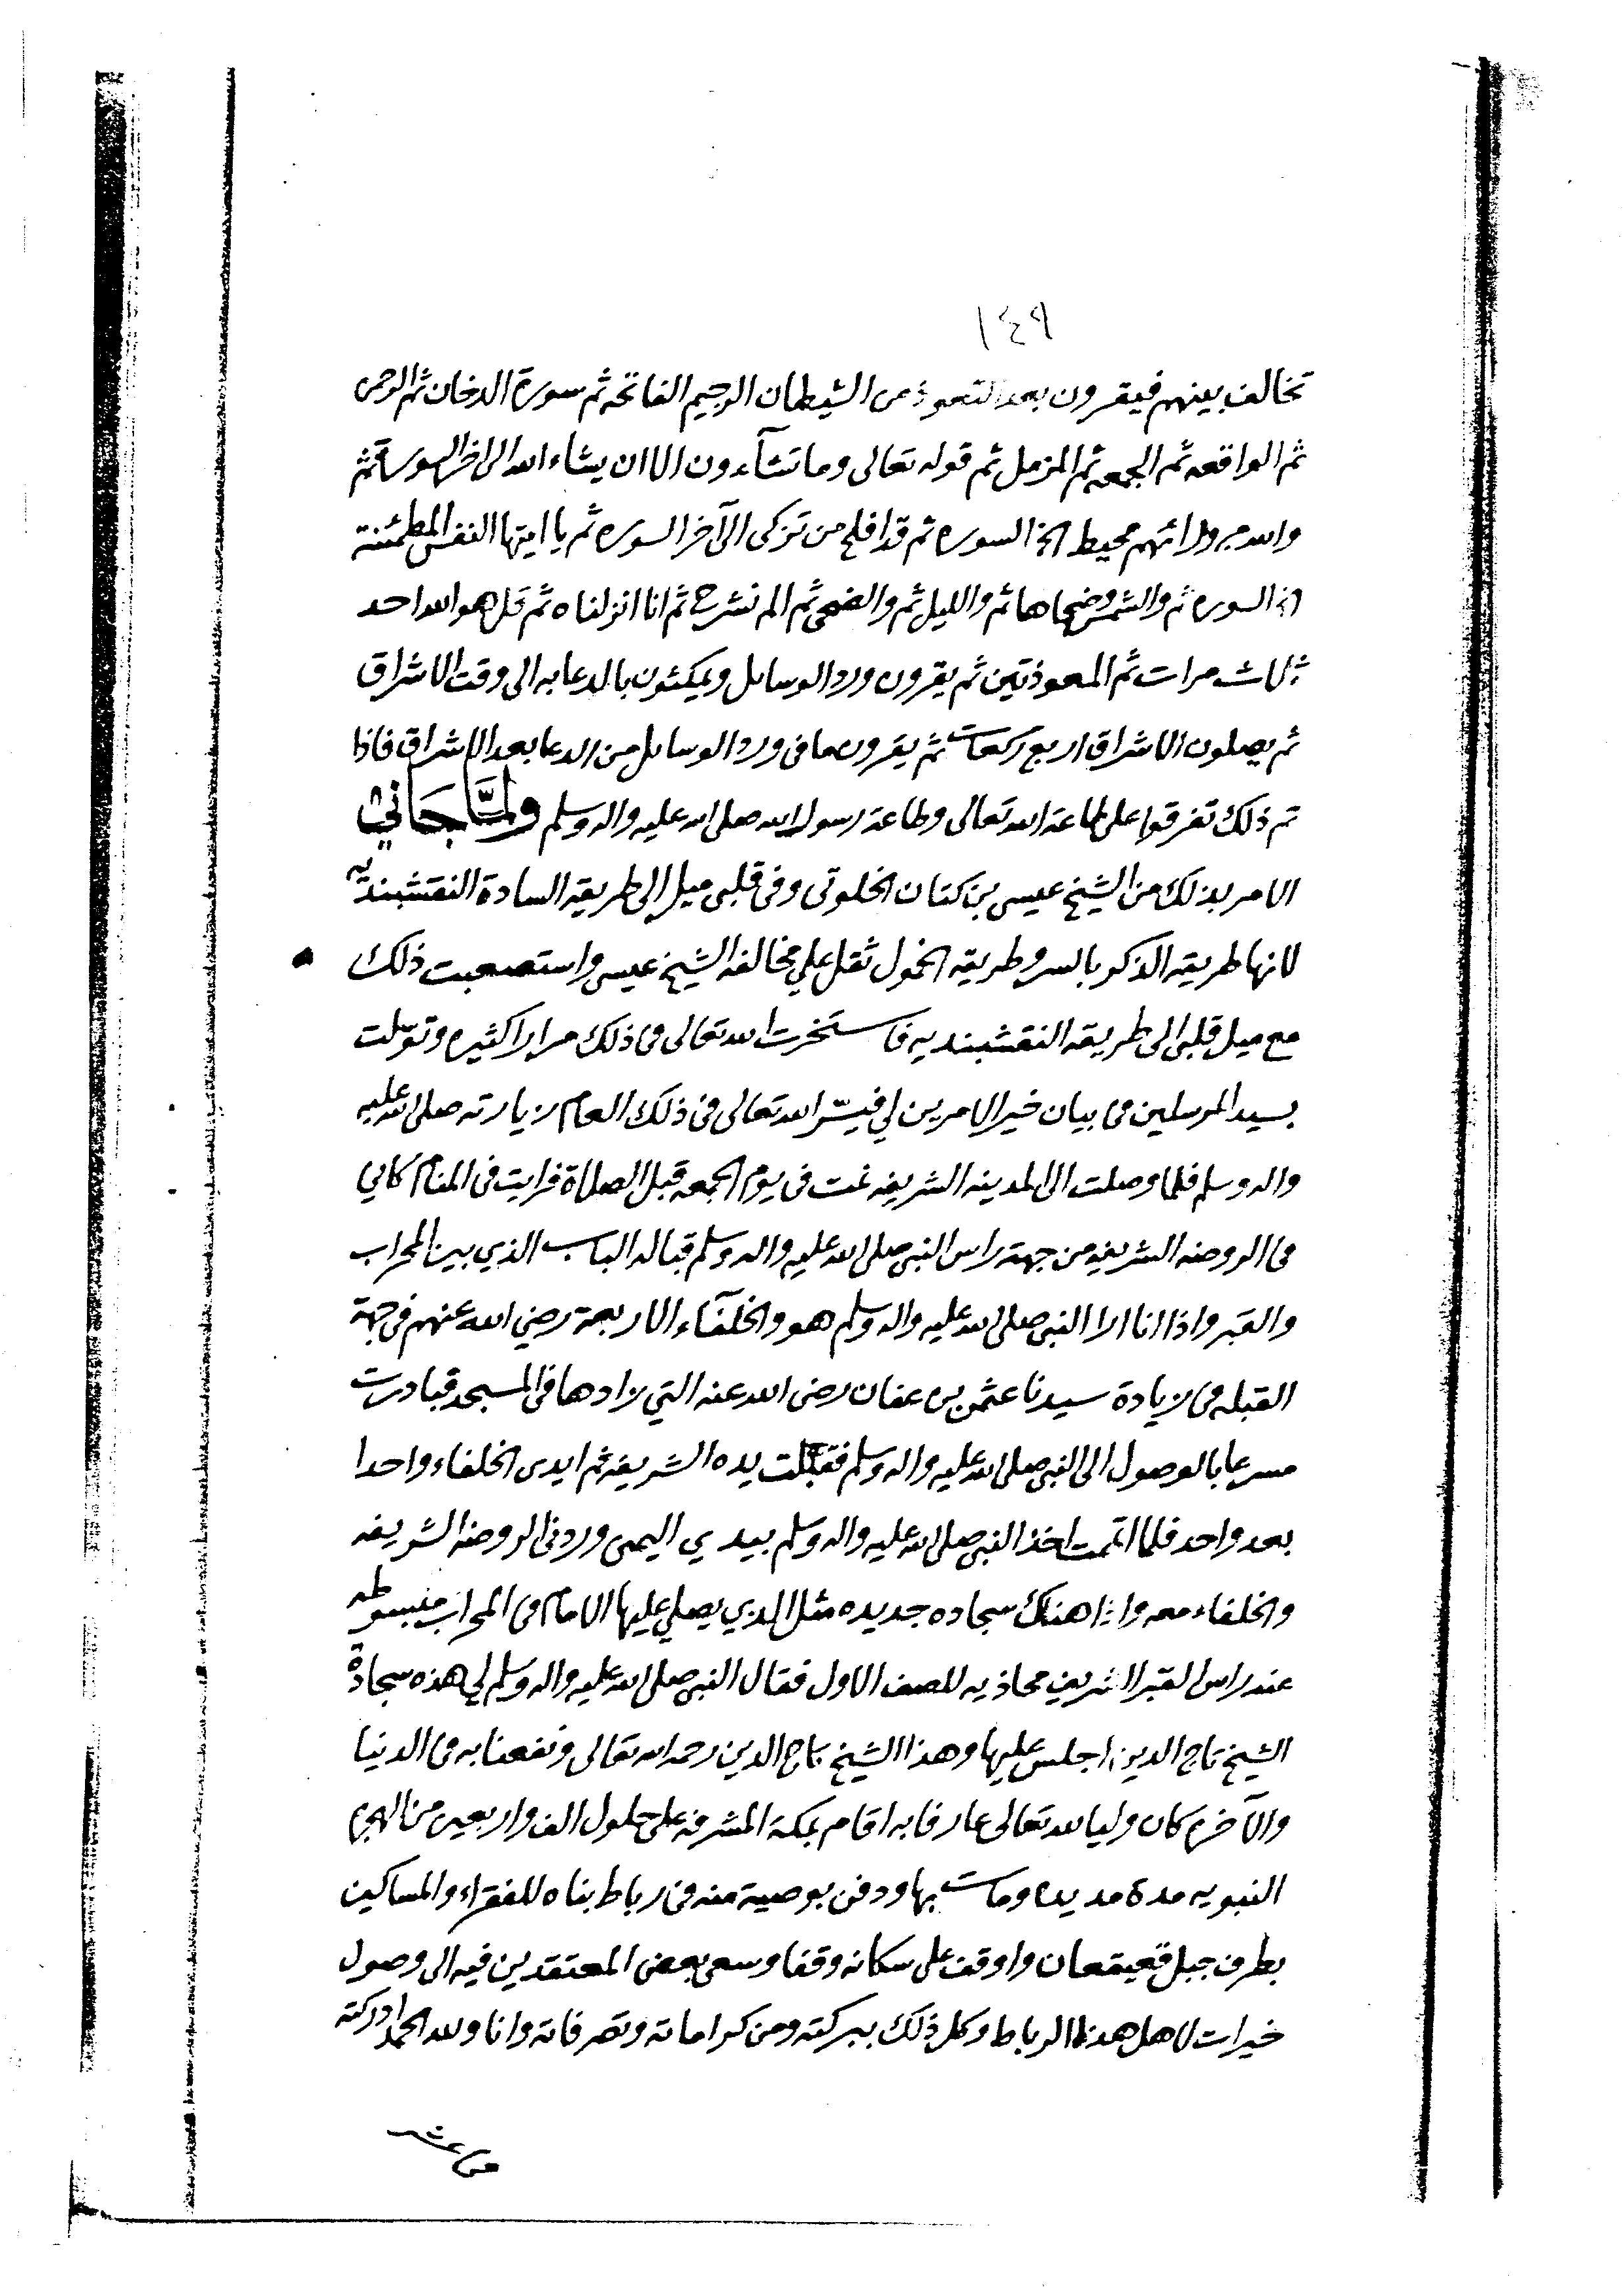 ١٤٩
تخالف بينهم فيقرون بعد التعوذ من الشيطان الرجيم الفاتحه ثم سورة الدخان ثم الرحمن
ثم الواقعه ثم الجمعه ثم المزمل ثم قوله تعالى وما تشآءون الا ان يشاء الله الى اخر السورة ثم
والله من ورائهم محيط الخ السوره ثم قد افلح من تزكى الى آخر السوره ثم يا ايتها النفس المطمئنة
الخ السوره ثم والشمس وضحاها ثم والليل ثم والضحى ثم الم نشرح ثم انا انزلناه ثم قل هو الله احد
ثلاث مرات ثم المعوذتين ثم يقرون ورد الوسايل ويمكثون بالدعا به الى وقت الاشراق
ثم يصلون الاشراق اربع ركعات ثم يقرون ما فى ورد الوسايل من الدعا بعد الاشراق فاذا
تم ذلك تفرقوا على طاعة الله تعالى وطاعة رسول الله صلى الله عليه واله وسلم ولمَّا جاني
الامر بذلك من الشيخ عيسى بن كنان الخلوتى وفى قلبى ميل الى طريقة السادة النقشبنديه
لانها طريقه الذكر بالسر وطريقه الخمول ثقل علي مخالفة الشيخ عيسى واستصعبت ذلك
مع ميل قلبى الى طريقه النقشبنديه فاستخرت الله تعالى فى ذلك مرارا كثيره وتوسّلت
بسيد المرسلين فى بيان خير الامرين لي فيسّر الله تعالى فى ذلك العام زيارته صلى الله عليه
واله وسلم فلما وصلت الى المدينه الشريفه نمت فى يوم الجمعه قبل الصلاة فرايت فى المنام كاني
فى الروضه الشريفه من جهة راس النبى صلى الله عليه واله وسلم قباله الباب الذي بين المحراب
والقبر واذا انا ارا النبى صلى الله عليه واله وسلم هو والخلفآء الاربعة رضي الله عنهم فى جهة
القبله فى زيادة سيدنا عثمن بن عفان رضى الله عنه التي زادها فى المسجد فبادرت
مسرعا بالوصول الى النبى صلى الله عليه واله وسلم فقبّلت يده الشريفه ثم ايدى الخلفاء واحدا
بعد واحد فلما اتممت اخذ النبى صلى الله عليه واله وسلم بيدي اليمنى وردنى الروضه الشريفه
والخلفاء معه واذا هناك سجاده جديده مثل الذي يصلي عليها الامام فى المحراب مبسوطه
عند راس القبر الشريف محاذيه للصف الاول فقال النبى صلى الله عليه واله وسلم لي هذه سجادة
الشيخ تاج الدين اجلس عليها وهذا الشيخ تاج الدين رحمه الله تعالى ونفعنا به فى الدنيا
والآخره كان وليا لله تعالى عارفا به اقام بمكة المشرفه على حلول الف واربعين من الهجره
النبويه مدة مديده ومات بها ودفن بوصية منه فى رباط بناه للفقراء والمساكين
بطرف جبل قعيقعان واوقف على سكانه وقفا وسعى بعض المعتقدين فيه الى وصول
خيرات لاهل هذا الرباط وكل ذلك ببركته ومن كراماته وتصرفاته وانا ولله الحمد ادركته